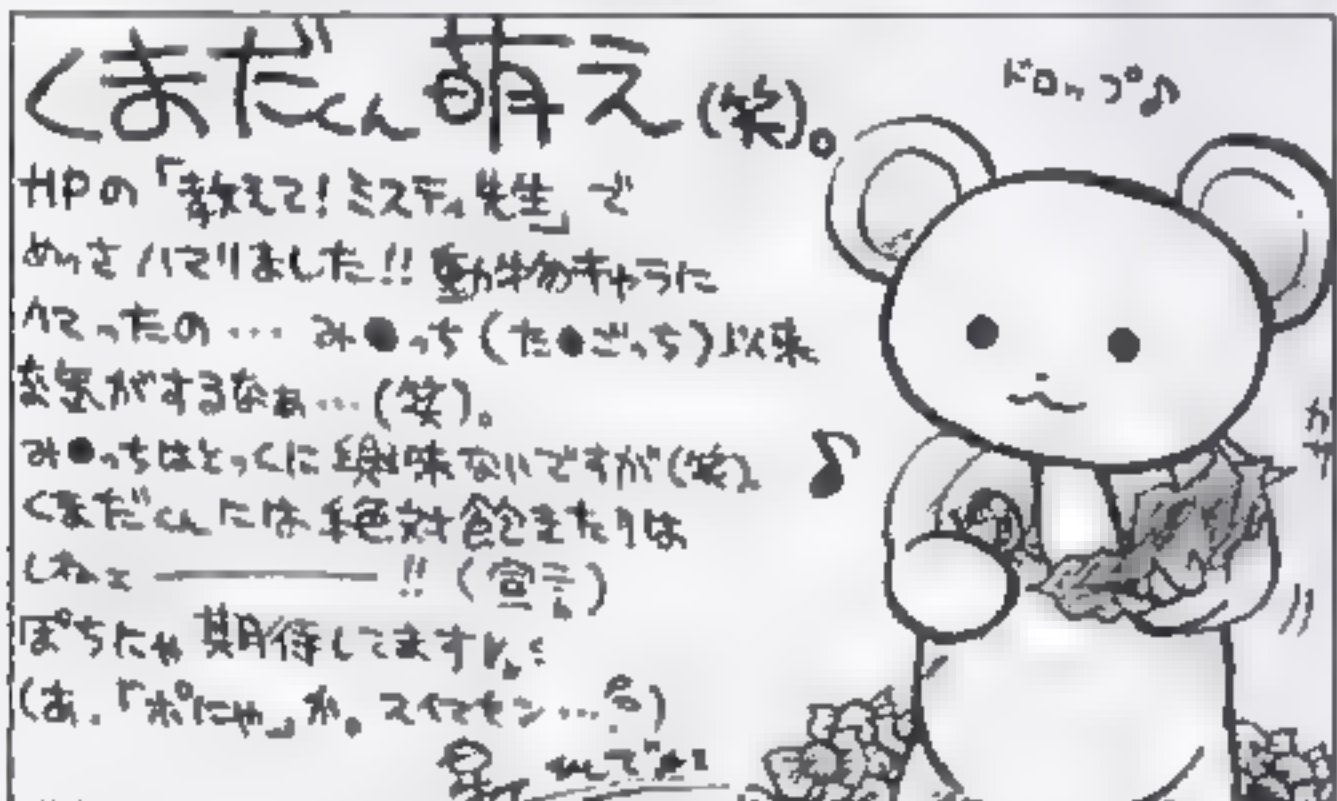 くまだくん萌え(笑)。
ドロップ♪
HPの「教えて!ミスティ先生」で
めっさハマりました!!動物キャラに
ハマったの…み●っち(た●ごっち)以来
な気がするなぁ…(笑)。
み●っちはとっくに興味ないですが(笑)。
くまだくんには絶対飽きたりは
しねぇ――――!!(宣言)
ぽちにゃ期待してますんで
(あ、「ポにゃ」か。スイマセン…)